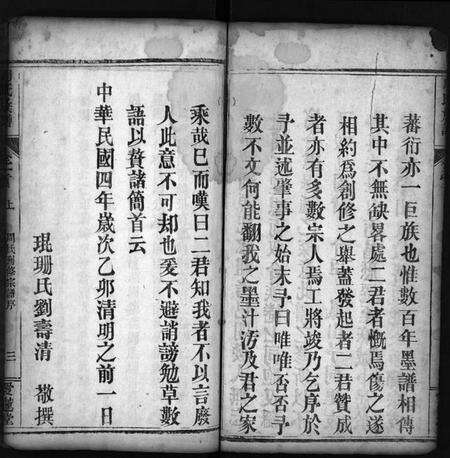 蕃衍亦一巨族也惟數百年墨譜相傳
其中不無缺畧處二君者慨焉傷之遂
相約爲創修之舉蓋發起者二君贊成
者亦有多數宗人焉工將竣乃乞序於
予並述肇事之始末予曰唯唯否否予
數不文何能翻我之墨汁汚及君之家
乘哉已而嘆曰二君知我者不以言廢
人此意不可却也爰不避誚謗勉草數
語以贅諸簡首云
中華民國四年歲次乙卯清明之前一日
琨珊氏劉壽清 敬撰
三